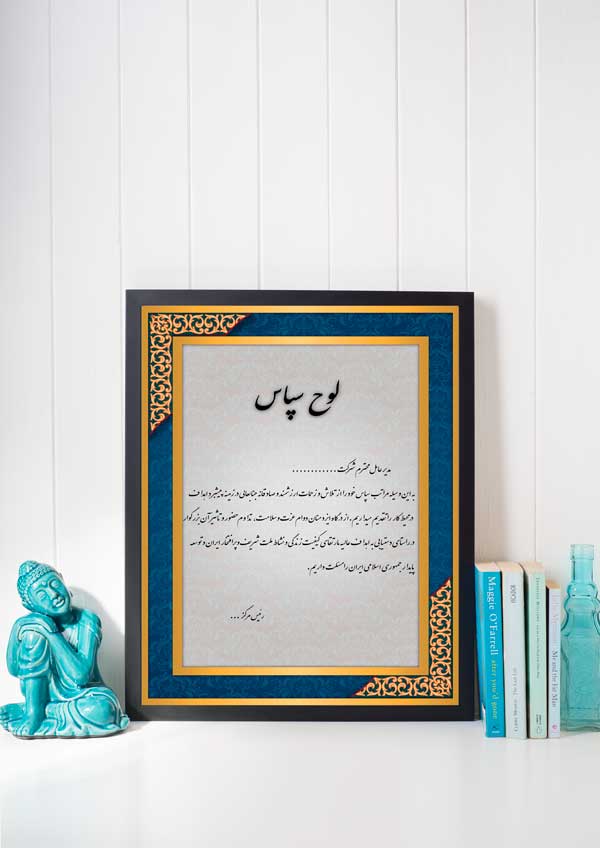 لوح سپاس
مدیر عامل محترم شرکت ............
به این وسیله مراتب سپاس خود را از تلاش و زحمات ارزشمند و صادقانه جنابعالی در زمینه پیشبرد اهداف
در محیط کار را تقدیم میداریم، از درگاه ایزد منان دوام عزت و سلامت، تداوم حضور و تاثیر آن بزرگوار
در راستای دستیابی به اهداف عالیه ما، ارتقای کیفیت زندگی و نشاط ملت شریف و پرافتخار ایران و توسعه
پایدار جمهوری اسلامی ایران را مسئلت داریم.
رئیس مرکز ...
Maggie O'Farrell after you'd gone
Me and the Fat Man